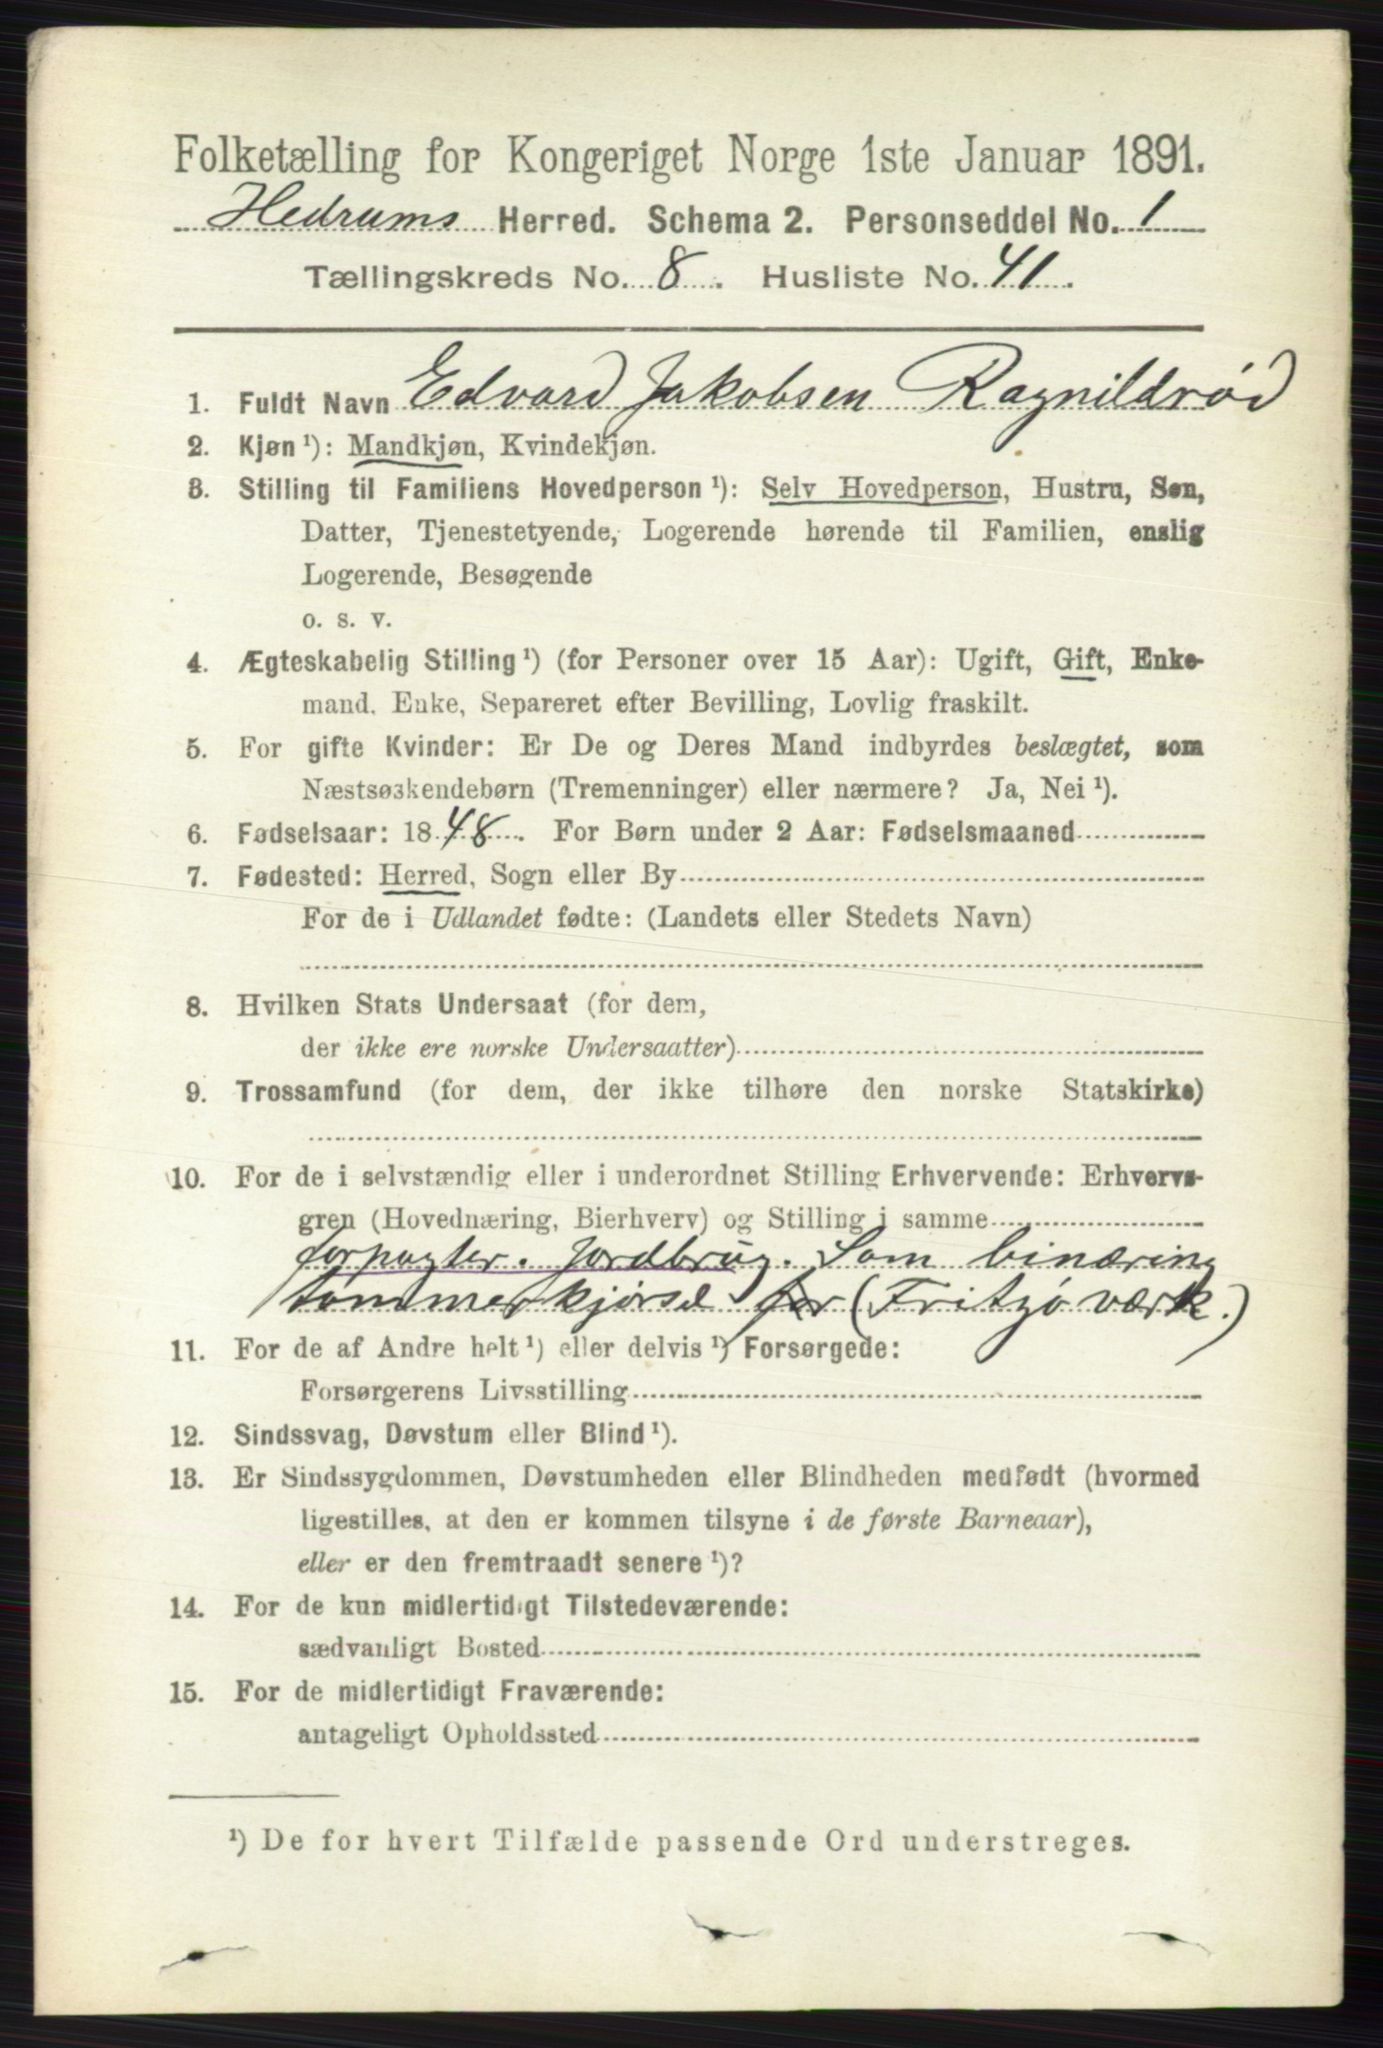 Folketælling for Kongeriget Norge 1ste Januar 1891.
Hedrums Herred. Schema 2. Personseddel No. 1
Tællingskreds No. 8. Husliste No. 41.
1. Fuldt Navn Edvard Jakobsen Ragnildrød
2. Kjøn ¹): Mandkjøn, Kvindekjøn.
3. Stilling til Familiens Hovedperson ¹): Selv Hovedperson, Hustru, Søn,
Datter, Tjenestetyende, Logerende hørende til Familien, enslig
Logerende, Besøgende
o. s. v.
4. Ægteskabelig Stilling ¹) (for Personer over 15 Aar): Ugift, Gift, Enke-
mand, Enke, Separeret efter Bevilling, Lovlig fraskilt.
5. For gifte Kvinder: Er De og Deres Mand indbyrdes beslægtet, som
Næstsøskendebørn (Tremenninger) eller nærmere? Ja, Nei ¹).
6. Fødselsaar: 1848. For Børn under 2 Aar: Fødselsmaaned
7. Fødested: Herred, Sogn eller By
For de i Udlandet fødte: (Landets eller Stedets Navn)
8. Hvilken Stats Undersaat (for dem,
der ikke ere norske Undersaatter)
9. Trossamfund (for dem, der ikke tilhøre den norske Statskirke)
10. For de i selvstændig eller i underordnet Stilling Erhvervende: Erhvervs-
gren (Hovednæring, Bierhverv) og Stilling i samme
forpagter. Jordbrug. Som binæring
tømmerkjørsel for (Fritzø værk.)
11. For de af Andre helt ¹) eller delvis ¹) Forsørgede:
Forsørgerens Livsstilling
12. Sindssvag, Døvstum eller Blind ¹).
13. Er Sindssygdommen, Døvstumheden eller Blindheden medfødt (hvormed
ligestilles, at den er kommen tilsyne i de første Barneaar),
eller er den fremtraadt senere ¹)?
14. For de kun midlertidigt Tilstedeværende:
sædvanligt Bosted
15. For de midlertidigt Fraværende:
antageligt Opholdssted
¹) De for hvert Tilfælde passende Ord understreges.